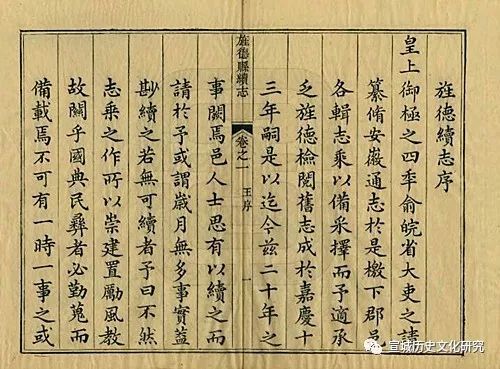 旌德續志序
皇上御極之四秊俞皖省大吏之請
纂脩安徽通志於是檄下郡邑
各輯志乘以備采擇而予適承
乏旌德檢閱舊志成於嘉慶十
三年嗣是以迄今茲二十年之
旌德縣續志
卷之一
王序
一
事闕焉邑人士思有以續之而
請於予或謂歲月無多事實蓋
尠續之若無可續者予曰不然
志乘之作所以崇建置勵風教
故關乎國典民彝者必勤蒐而
備載焉不可有一時一事之或
宣城历史文化研究